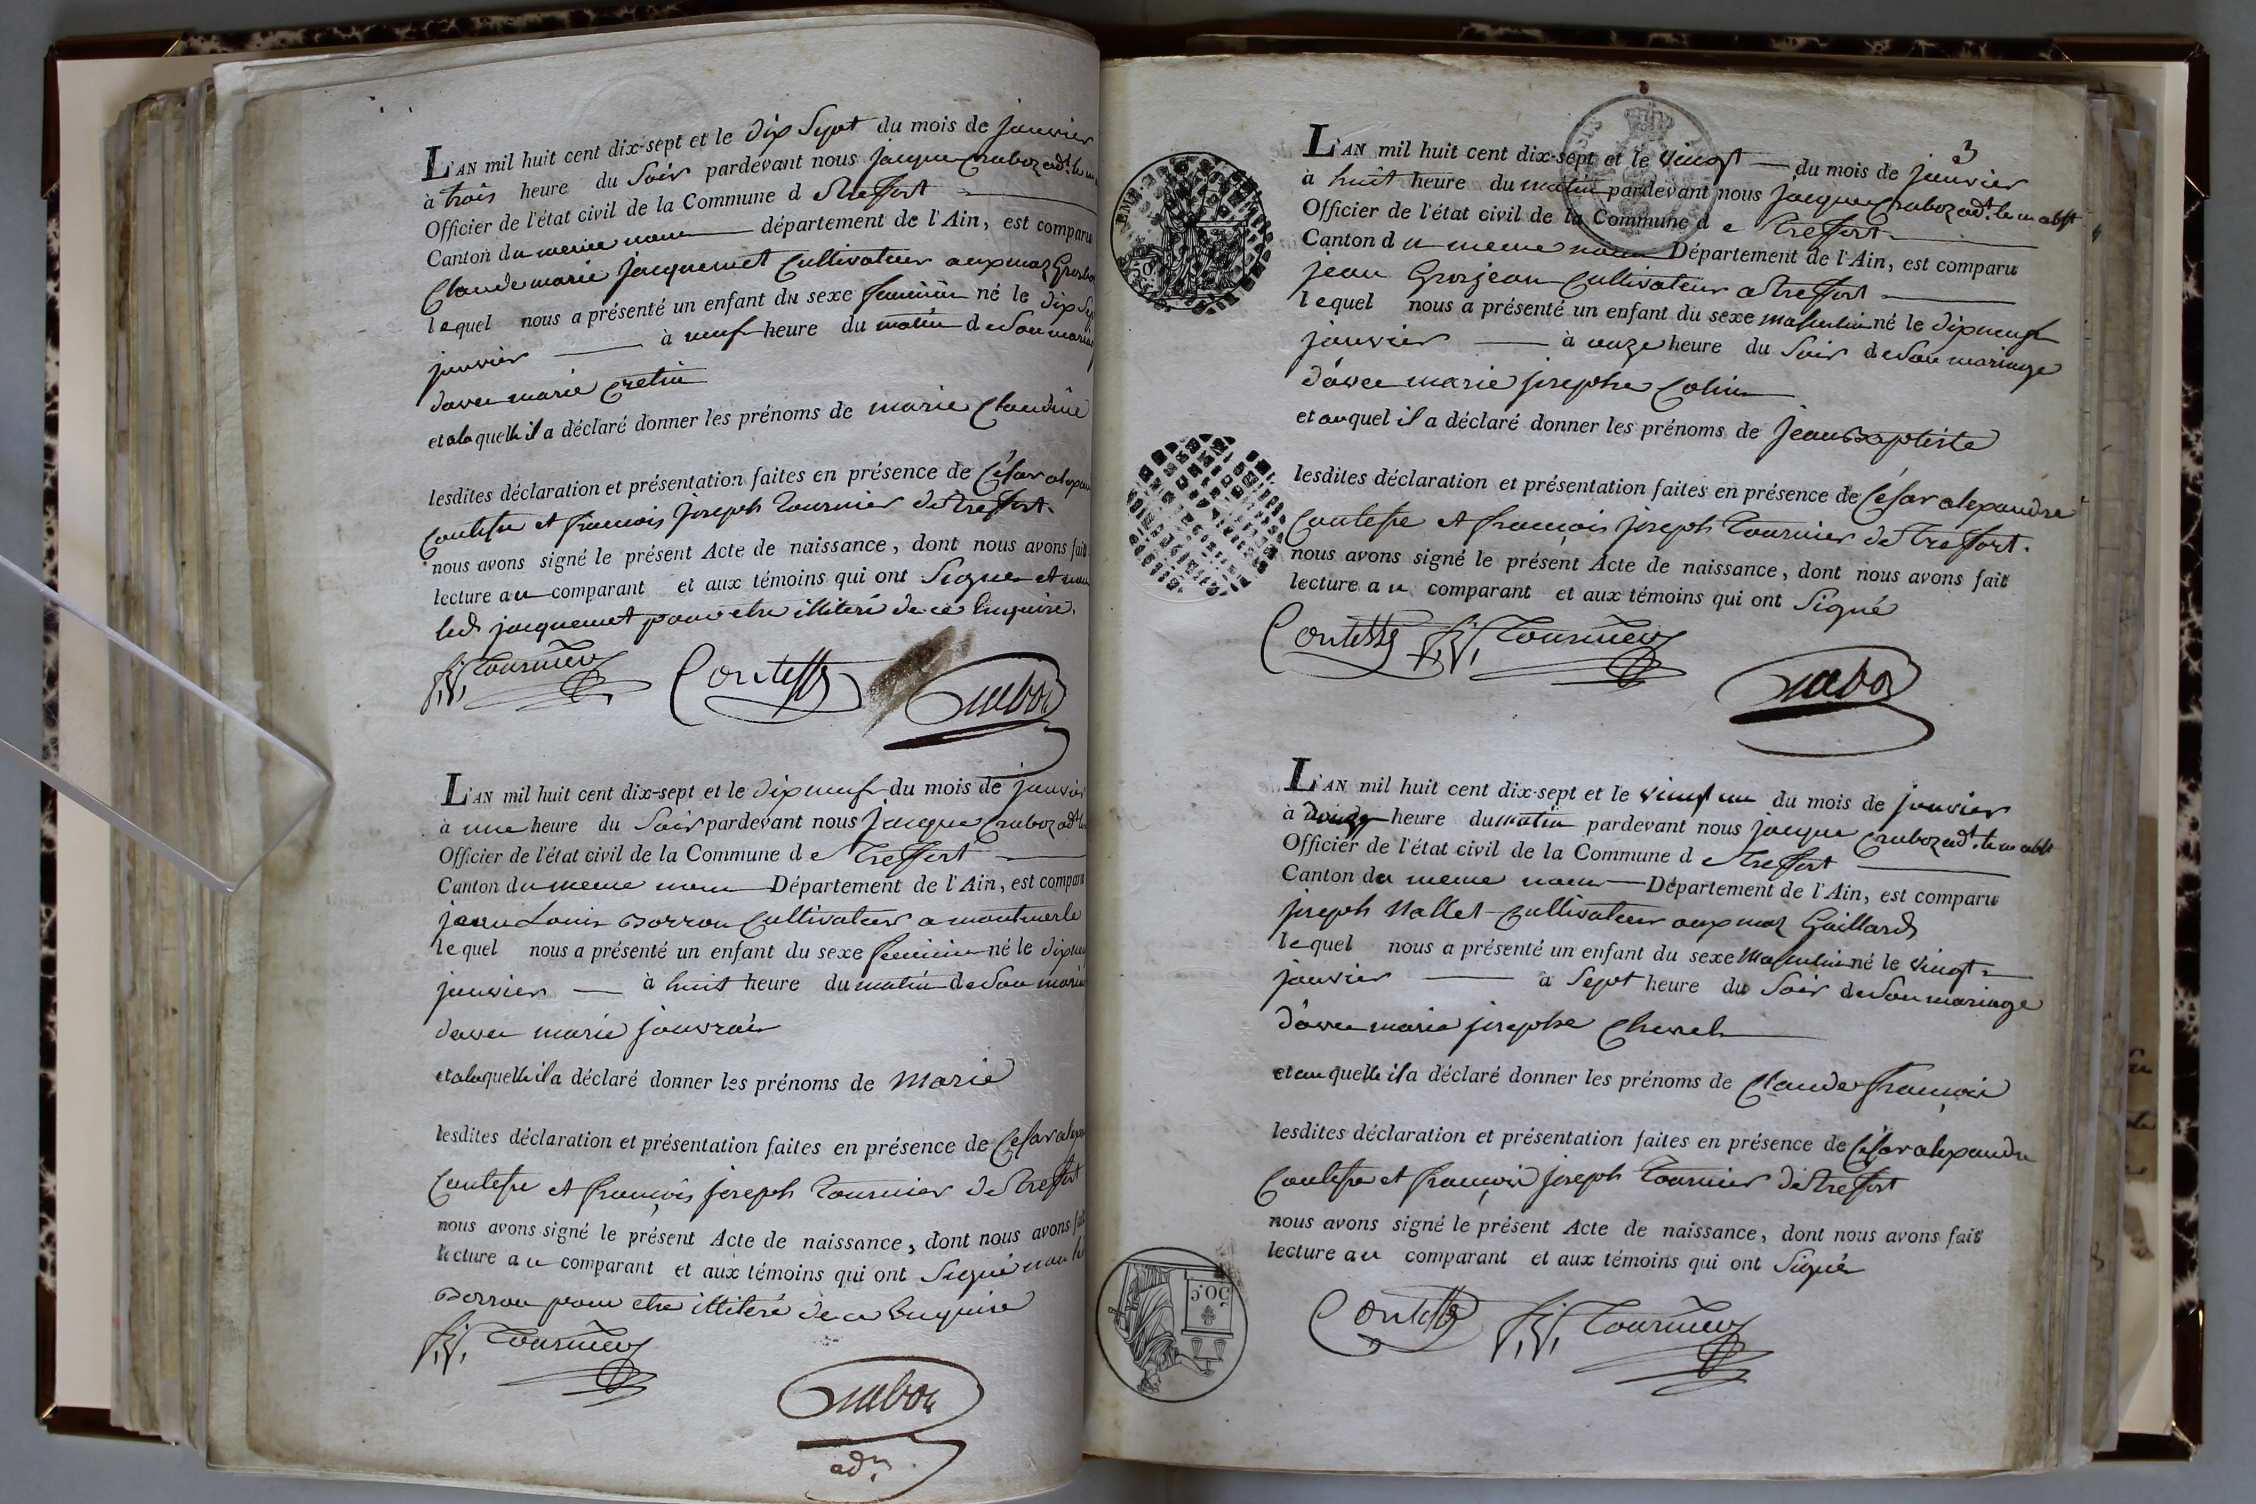 L'AN mil huit cent dix-sept et le dix Sept du mois de janvier
à trois heure du Soir pardevant nous jacque Craboz adt. le m
Officier de l'état civil de la Commune d e Treffort
Canton du meme nom département de l'Ain, est comparu
Claude marie jacquemet Cultivateur aux maz
lequel nous a présenté un enfant du sexe feminin né le dix Se
janvier à neuf heure du matin de Son maria
davec marie Cretin
et a la quelle il a déclaré donner les prénoms de marie Claudine
lesdites déclaration et présentation faites en présence de César alexan
Contesse et françois joseph Tournier de Treffort.
nous avons signé le présent Acte de naissance, dont nous avons fait
lecture au comparant et aux témoins qui ont Signer et non
led. jacquemet pour etre illiteré de ce Enquire.
f, j, Tournier Contesse Craboz
L'AN mil huit cent dix-sept et le dix neuf du mois de janvier
à une heure du Soir pardevant nous jacque Craboz adt. le
Officier de l'état civil de la Commune d e Treffort
Canton du meme nom Département de l'Ain, est comparu
jean Louis Borron Cultivateur a montmerle
lequel nous a présenté un enfant du sexe feminin né le dix neu
janvier à huit heure du matin de Son maria
davec marie jouvrain
et a la quelle il a déclaré donner les prénoms de Marie
lesdites déclaration et présentation faites en présence de César alexan
Contesse et françois joseph Tournier de Treffort
nous avons signé le présent Acte de naissance, dont nous avons fait
lecture au comparant et aux témoins qui ont Signé non le
Borron pour etre illiteré de ce Enquire
f, j, Tournier
Craboz
adt.
3
L'AN mil huit cent dix-sept et le vingt du mois de janvier
à huit heure du matin pardevant nous jacque Craboz adt. le m abst
Officier de l'état civil de la Commune d e Treffort
Canton d u meme nom Département de l'Ain, est comparu
jean Grosjean Cultivateur a Treffort
lequel nous a présenté un enfant du sexe masculin né le dix neuf
janvier à onze heure du Soir de Son mariage
d'avec marie josephe Colin
et au quel il a déclaré donner les prénoms de jean Baptiste
lesdites déclaration et présentation faites en présence de César alexandre
Contesse et françois joseph Tournier de Treffort.
nous avons signé le présent Acte de naissance, dont nous avons fait
lecture a u comparant et aux témoins qui ont Signé
Contesse f, j, Tournier
Craboz
L'AN mil huit cent dix-sept et le vingt un du mois de janvier
à heure du matin pardevant nous jacque Craboz adt. le m abst
Officier de l'état civil de la Commune d e Treffort
Canton du meme nom Département de l'Ain, est comparu
joseph Nallet Cultivateur aux maz Gaillard
lequel nous a présenté un enfant du sexe Masculin né le vingt
janvier à Sept heure du Soir de Son mariage
d'avec marie josephe Chevrel
et au quelle il a déclaré donner les prénoms de Claude françois
lesdites déclaration et présentation faites en présence de César alexandre
Contesse et françois joseph Tournier de Treffort
nous avons signé le présent Acte de naissance, dont nous avons fait
lecture au comparant et aux témoins qui ont Signé
Contesse f, j, Tournier
50 c